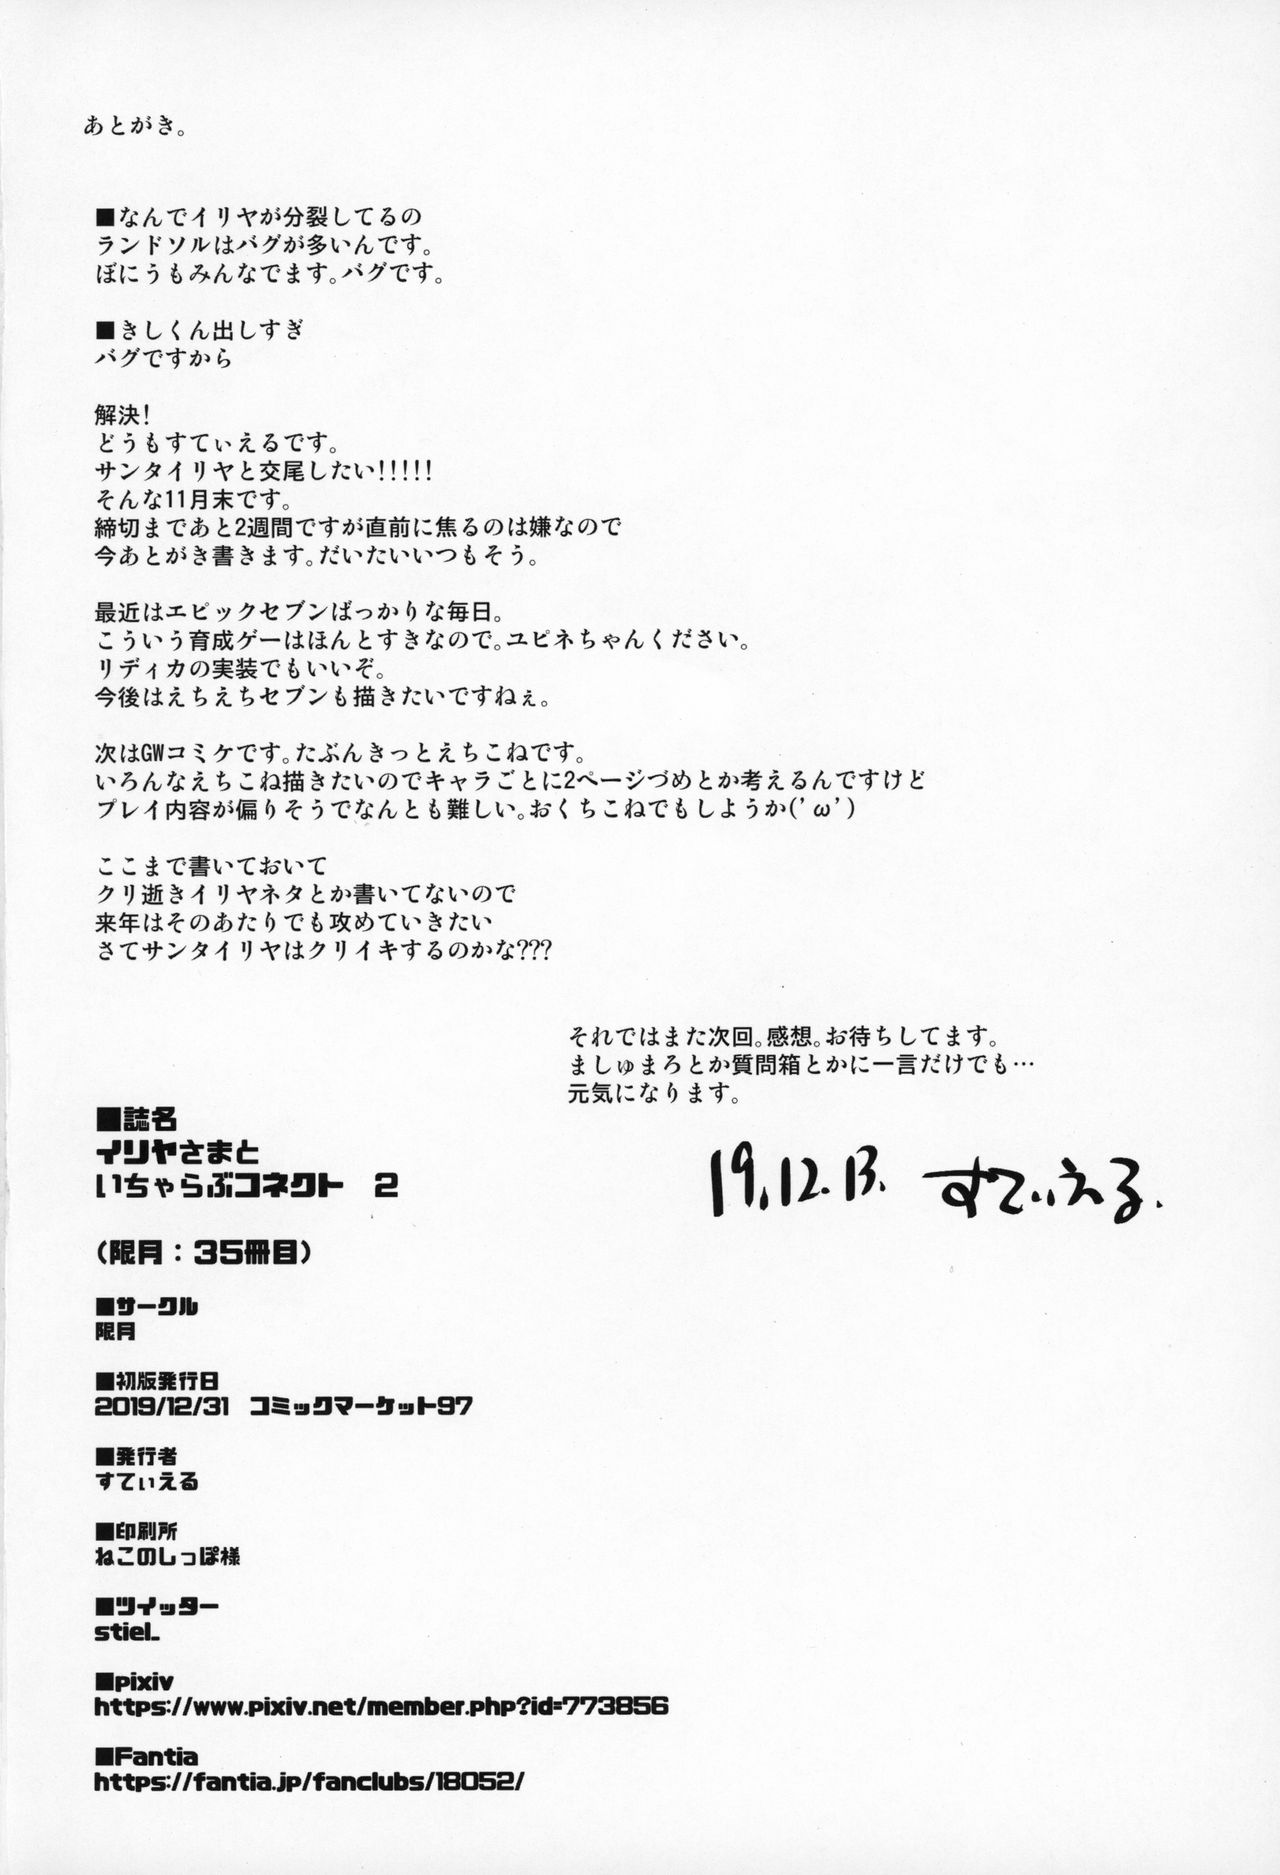 あとがき。
■なんでイリヤが分裂してるの
ランドソルはバグが多いんです。
ぼにうもみんなでます。バグです。
■きしくん出しすぎ
バグですから
解決!
どうもすてぃえるです。
サンタイリヤと交尾したい!!!!!
そんな11月末です。
締切まであと2週間ですが直前に焦るのは嫌なので
今あとがき書きます。だいたいいつもそう。
最近はエピックセブンばっかりな毎日。
こういう育成ゲーはほんとすきなので。ユピネちゃんください。
リディカの実装でもいいぞ。
今後はえちえちセブンも描きたいですねぇ。
次はGWコミケです。たぶんきっとえちこねです。
いろんなえちこね描きたいのでキャラごとに2ページづめとか考えるんですけど
プレイ内容が偏りそうでなんとも難しい。おくちこねでもしようか('ω')
ここまで書いておいて
クリ逝きイリヤネタとか書いてないので
来年はそのあたりでも攻めていきたい
さてサンタイリヤはクリイキするのかな???
それではまた次回。感想。お待ちしてます。
ましゅまろとか質問箱とかに一言だけでも…
元気になります。
19.12.13. すてぃえる.
■誌名
イリヤさまと
いちゃらぶコネクト 2
(限月:35冊目)
■サークル
限月
■初版発行日
2019/12/31 コミックマーケット97
■発行者
すてぃえる
■印刷所
ねこのしっぽ様
■ツイッター
stiel_
■pixiv
https://www.pixiv.net/member.php?id=773856
■Fantia
https://fantia.jp/fanclubs/18052/